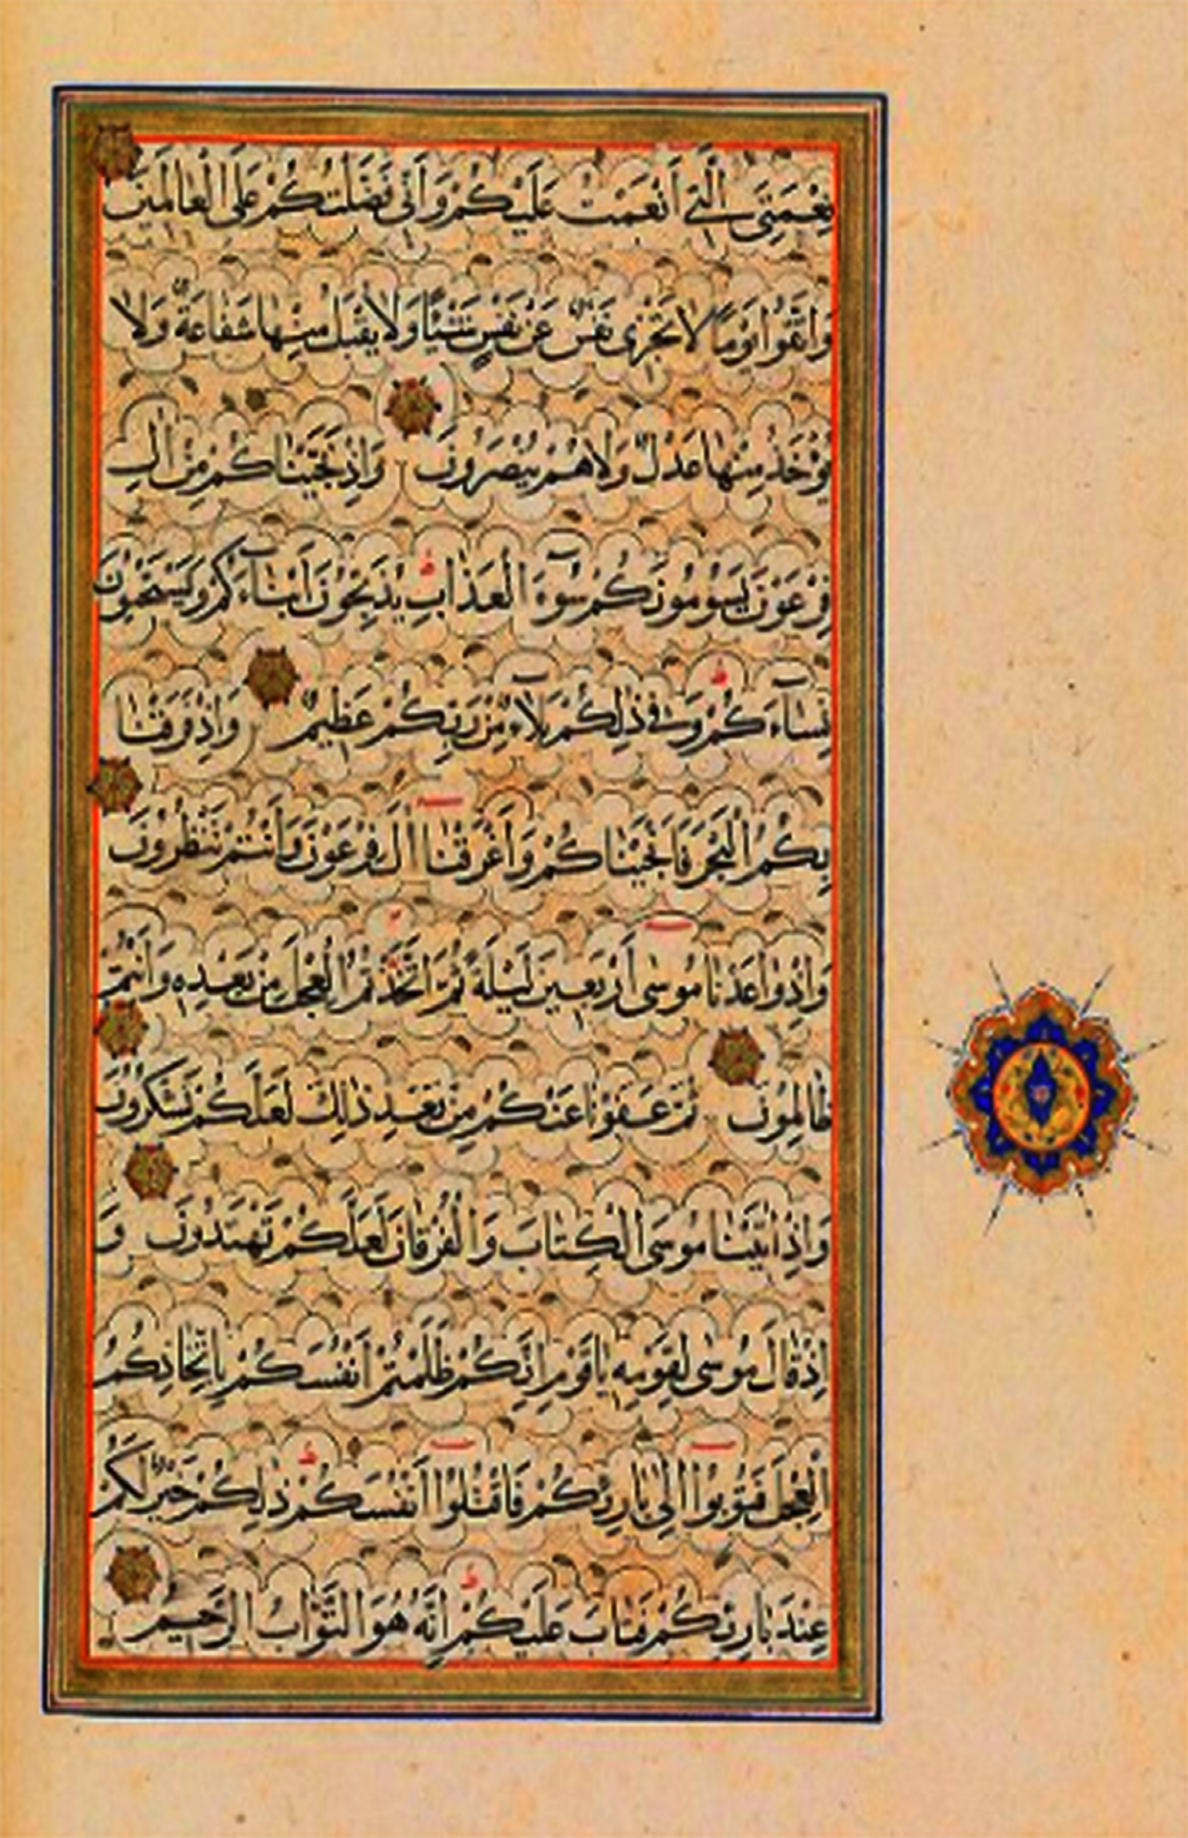 نِعْمَتِىَ الَّتِى أَنْعَمْتُ عَلَيْكُمْ وَأَنِّى فَضَّلْتُكُمْ عَلَى الْعَالَمِينَ
وَاتَّقُوا يَوْمًا لَا تَجْزِى نَفْسٌ عَنْ نَفْسٍ شَيْئًا وَلَا يُقْبَلُ مِنْهَا شَفَاعَةٌ وَلَا
يُؤْخَذُ مِنْهَا عَدْلٌ وَلَا هُمْ يُنْصَرُونَ وَإِذْ نَجَّيْنَاكُمْ مِنْ اٰلِ
فِرْعَوْنَ يَسُومُونَكُمْ سُوٓءَ الْعَذَابِ يُذَبِّحُونَ أَبْنَآءَكُمْ وَيَسْتَحْيُونَ
نِسَآءَكُمْ وَفِى ذٰلِكُمْ بَلَآءٌ مِنْ رَبِّكُمْ عَظِيمٌ وَإِذْ فَرَقْنَا
بِكُمُ الْبَحْرَ فَأَنْجَيْنَاكُمْ وَأَغْرَقْنَا اٰلَ فِرْعَوْنَ وَأَنْتُمْ تَنْظُرُونَ
وَإِذْ وَاعَدْنَا مُوسٰى أَرْبَعِينَ لَيْلَةً ثُمَّ اتَّخَذْتُمُ الْعِجْلَ مِنْ بَعْدِهِ وَأَنْتُمْ
ظَالِمُونَ ثُمَّ عَفَوْنَا عَنْكُمْ مِنْ بَعْدِ ذٰلِكَ لَعَلَّكُمْ تَشْكُرُونَ
وَإِذْ اٰتَيْنَا مُوسَى الْكِتَابَ وَالْفُرْقَانَ لَعَلَّكُمْ تَهْتَدُونَ وَ
إِذْ قَالَ مُوسٰى لِقَوْمِهِ يَاقَوْمِ إِنَّكُمْ ظَلَمْتُمْ أَنْفُسَكُمْ بِاتِّخَاذِكُمُ
الْعِجْلَ فَتُوبُوا إِلٰى بَارِئِكُمْ فَاقْتُلُوا أَنْفُسَكُمْ ذٰلِكُمْ خَيْرٌ لَكُمْ
عِنْدَ بَارِئِكُمْ فَتَابَ عَلَيْكُمْ إِنَّهُ هُوَ التَّوَّابُ الرَّحِيمُ